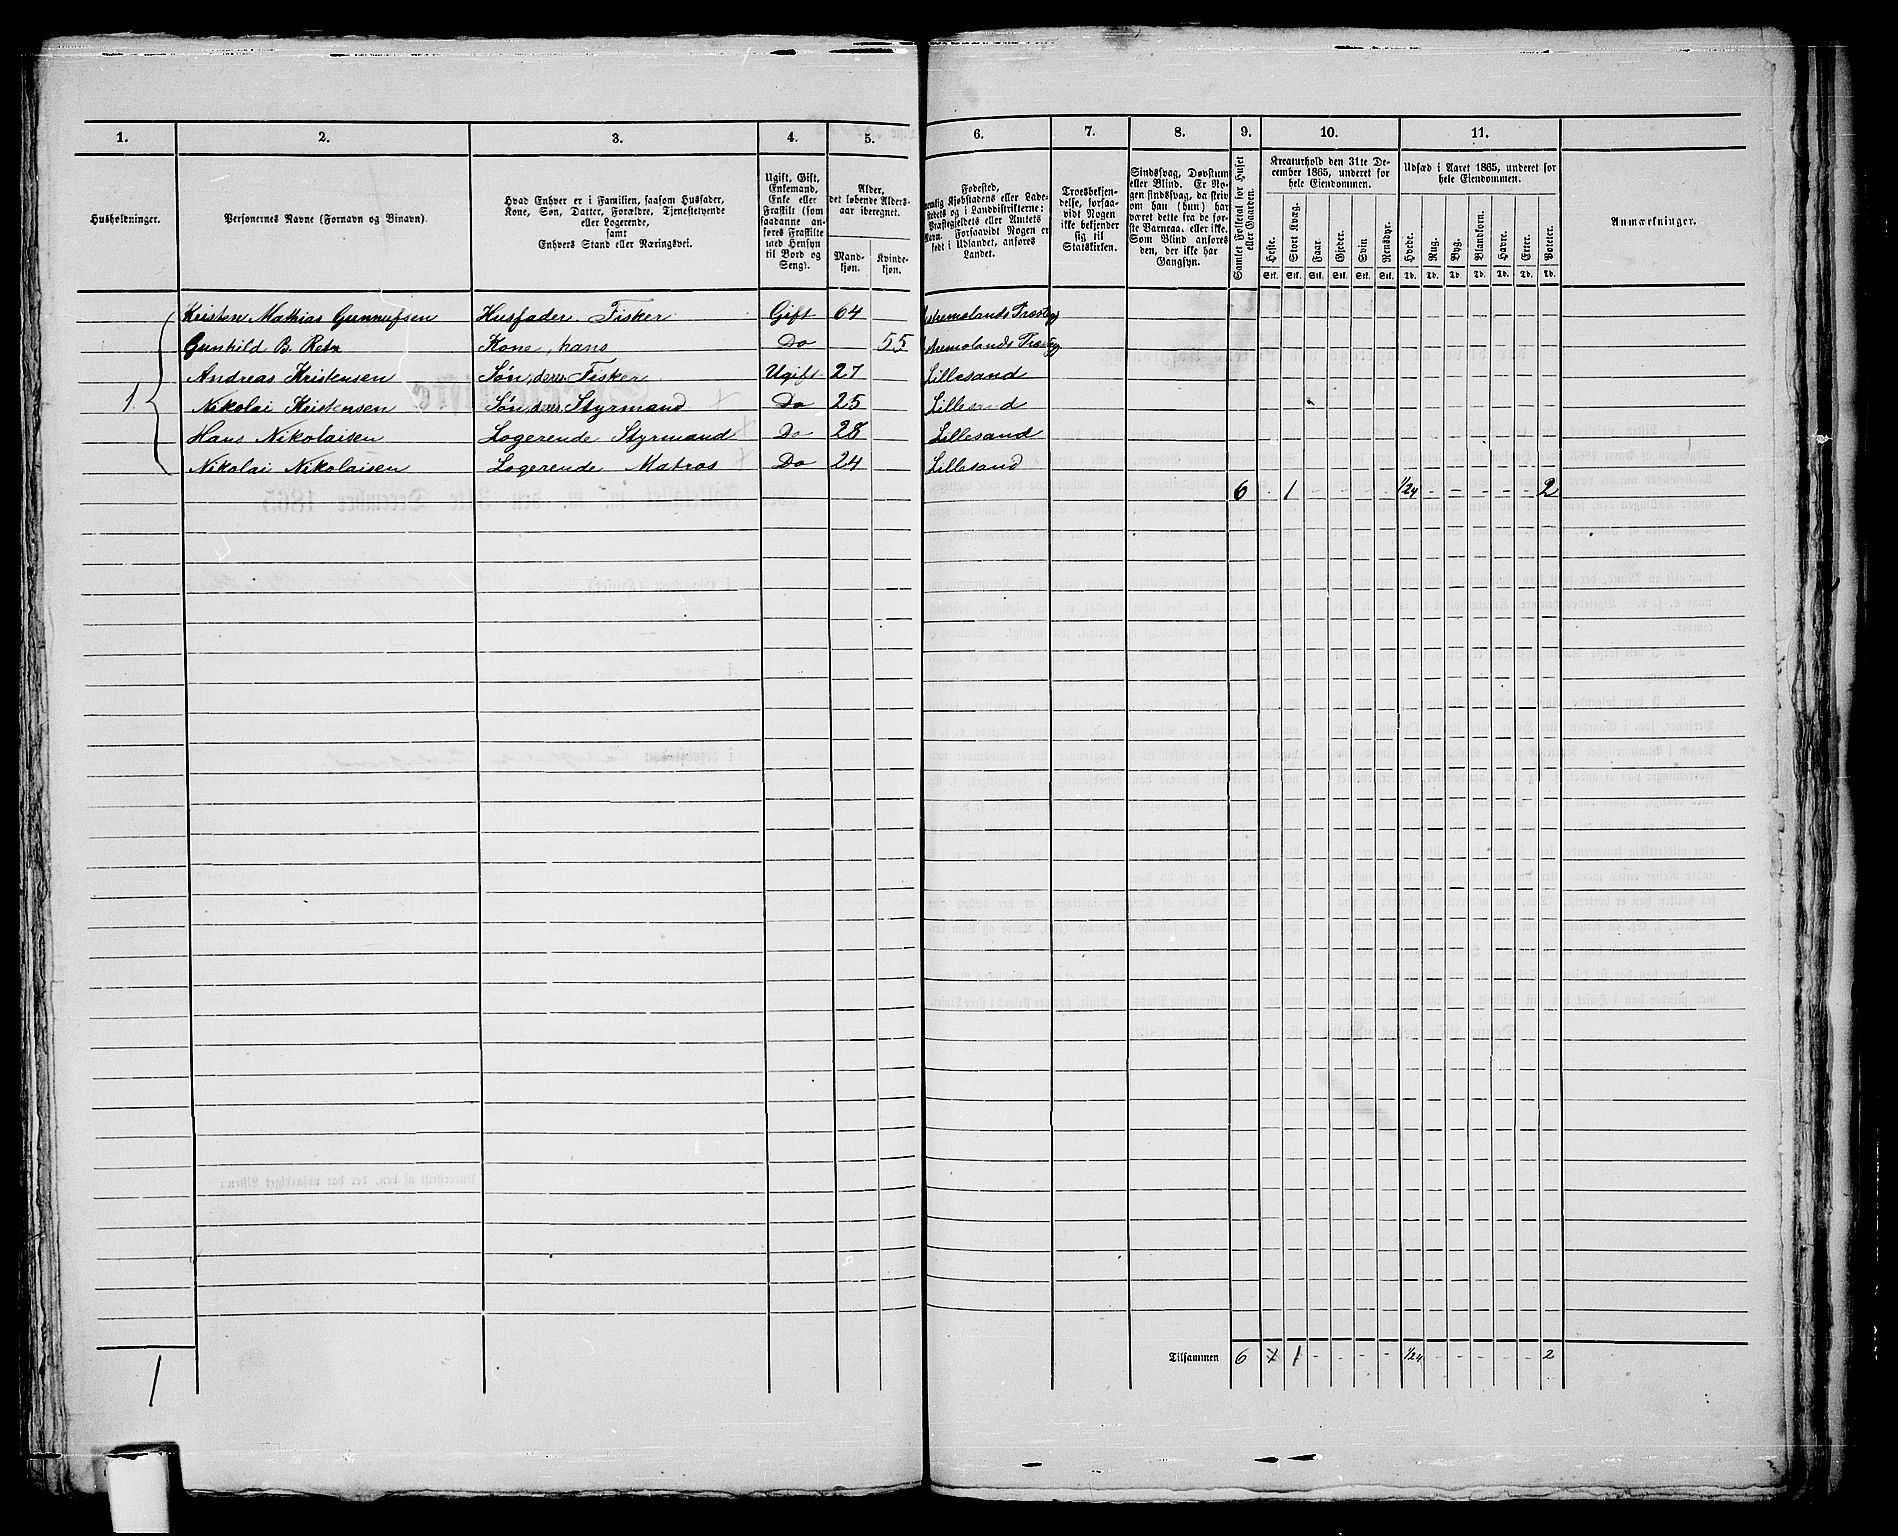 1. 2. 3. 4. 5. 6. 7. 8. 9. 10. 11.
Husholdninger.
Personernes Navne (Fornavn og Binavn).
Hvad Enhver er i Familien, saasom Husfader,
Kone, Søn, Datter, Forældre, Tjenestetyende
eller Logerende,
samt
Enhvers Stand eller Næringsvei.
Ugift, Gift,
Enkemand,
Enke eller
Fraskilt (som
saadanne an-
føres Fraskilte
med Hensyn
til Bord og
Seng).
Alder,
det løbende Alders-
aar iberegnet.
Mand-
kjøn.
Kvinde-
kjøn.
Fødested,
nemlig Kjøbstadens eller Lade-
stedets og i Landdistrikterne:
Præstegjeldets eller Amtets
Navn. Forsaavidt Nogen er
født i Udlandet, anføres
Landet.
Troesbekjen-
delse, forsaa-
vidt Nogen
ikke bekjender
sig til
Statskirken.
Sindssvag, Døvstum
eller Blind. Er No-
gen sindssvag, da skriv
om han (hun) har
været dette fra de før-
ste Barneaar eller ikke.
Som Blind anføres
den, der ikke har
Gangsyn.
Samlet Folketal for Huset
eller Gaarden.
Kreaturhold den 31te De-
cember 1865, underet for
hele Eiendommen.
Heste. Stort Kvæg. Faar. Gjeder. Svin. Rensdyr.
Stk. Stk. Stk. Stk. Stk. Stk.
Udsæd i Aaret 1865, underet for
hele Eiendommen.
Hvede. Rug. Byg. Blandkorn. Havre. Erter. Poteter.
Td. Td. Td. Td. Td. Td. Td.
Anmærkninger.
Kristen Mathias Gunnufsen Husfader. Fisker Gift 64
Gunhild B. Kone, hans Do 55
Andreas Kristensen Søn, deres Fisker Ugift 27 Lillesand
1. Nikolai Kristensen Søn, deres Styrmand Do 25 Lillesand
Hans Nikolaisen Logerende Styrmand Do 28 Lillesand
Nikolai Nikolaisen Logerende Matros Do 24 Lillesand
6 - 1 - - - - 1/24 - - - - - 2
Tilsammen 6 1 - - - - 1/24 - - - - - 2
1